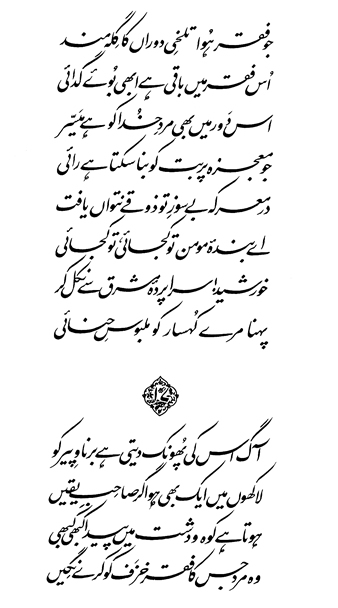 جو فقر ہُوا تلخیِ دوراں کا گِلہ مند
اُس فقر میں باقی ہے ابھی بُوئے گدائی
اس دَور میں بھی مردِ خُدا کو ہے میَسّر
جو معجزہ پربت کو بنا سکتا ہے رائی
در معرکہ بے سوزِ تو ذوقے نتواں یافت
اے بندۂ مومن تو کجائی، تو کجائی
خورشید! سرا پردۂ مشرق سے نکل کر
پہنا مرے کُہسار کو ملبوسِ حنائی
آگ اس کی پُھونک دیتی ہے برنا و پیر کو
لاکھوں میں ایک بھی ہو اگر صاحبِ یقیں
ہوتا ہے کوہ و دشت میں پیدا کبھی کبھی
وہ مرد جس کا فقر خزف کو کرے نگیں